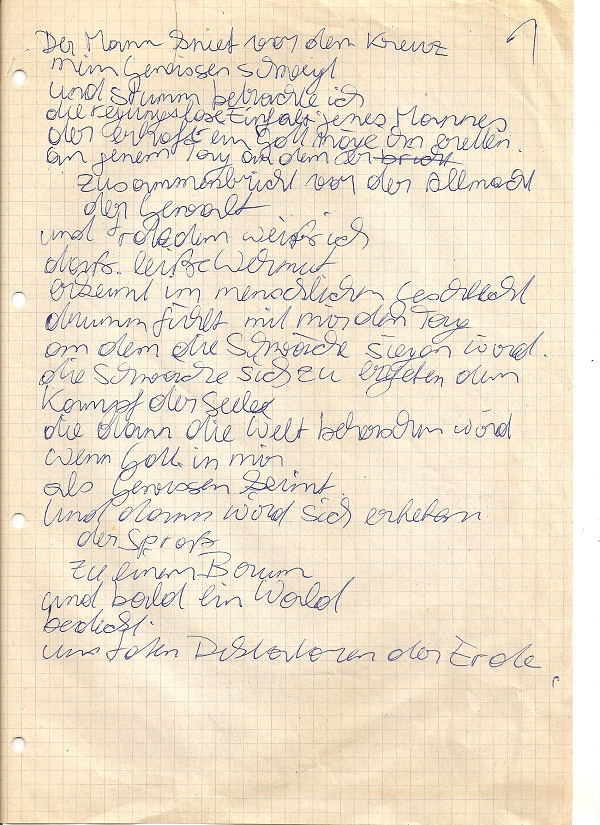 1
Der Mann kniet vor dem Kreuz
mein Gewissen schweigt
und stumm betrachte ich
die Einfalt jenes Mannes
der erhofft ein Gott möge ihn
an jenem Tag an dem er bricht
zusammenbricht vor der Allmacht
der Gewalt
und trotzdem weiß ich
daß Wermut
im menschlichen Geschlecht
drumm fürchtet mit mir den Tag
an dem die Schwäche siegen wird.
die Schwäche sich zu ergeben dem
Kampf der Seele
die dann die Welt beherschen wird
wenn Gott in mir
als Gewissen keimt.
Und dann wird sich erheben
der Sproß
zu einem Baum
und bald ein Wald
bedeckt
uns toten Diktatoren der Erde